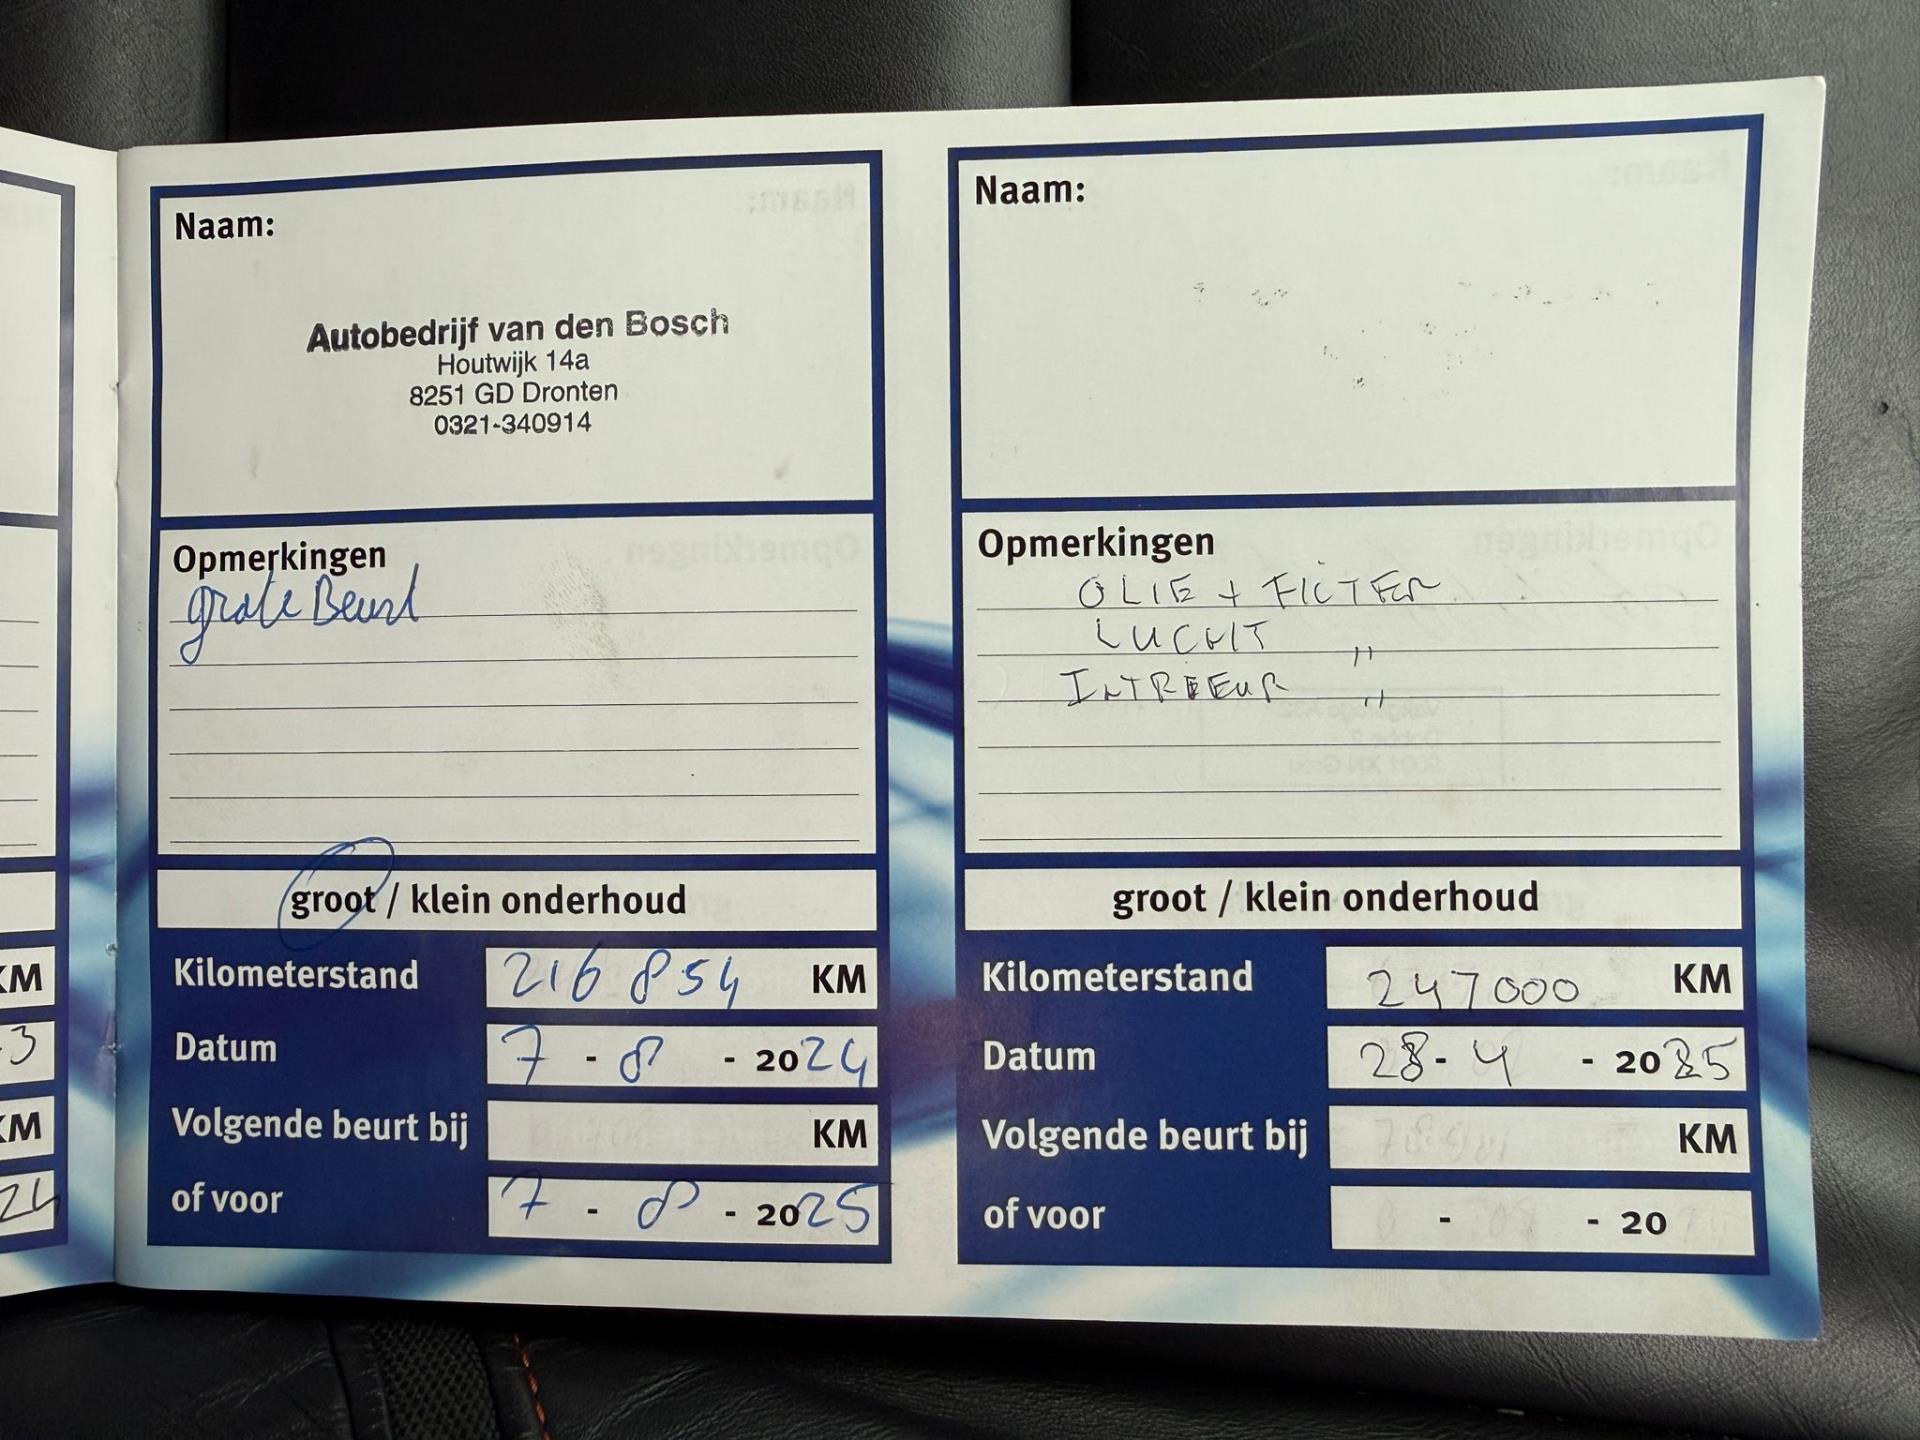 Naam:
Autobedrijf van den Bosch
Houtwijk 14a
8251 GD Dronten
0321-340914
Opmerkingen
grote Beurt
groot / klein onderhoud
Kilometerstand 216854 KM
Datum 7 - 8 - 2024
Volgende beurt bij KM
of voor 7 - 8 - 2025
Naam:
Opmerkingen
OLIE + FILTER
LUCHT "
INTRIEEUR "
groot / klein onderhoud
Kilometerstand 247000 KM
Datum 28 - 4 - 2025
Volgende beurt bij KM
of voor - - 20
KM
3
KM
24